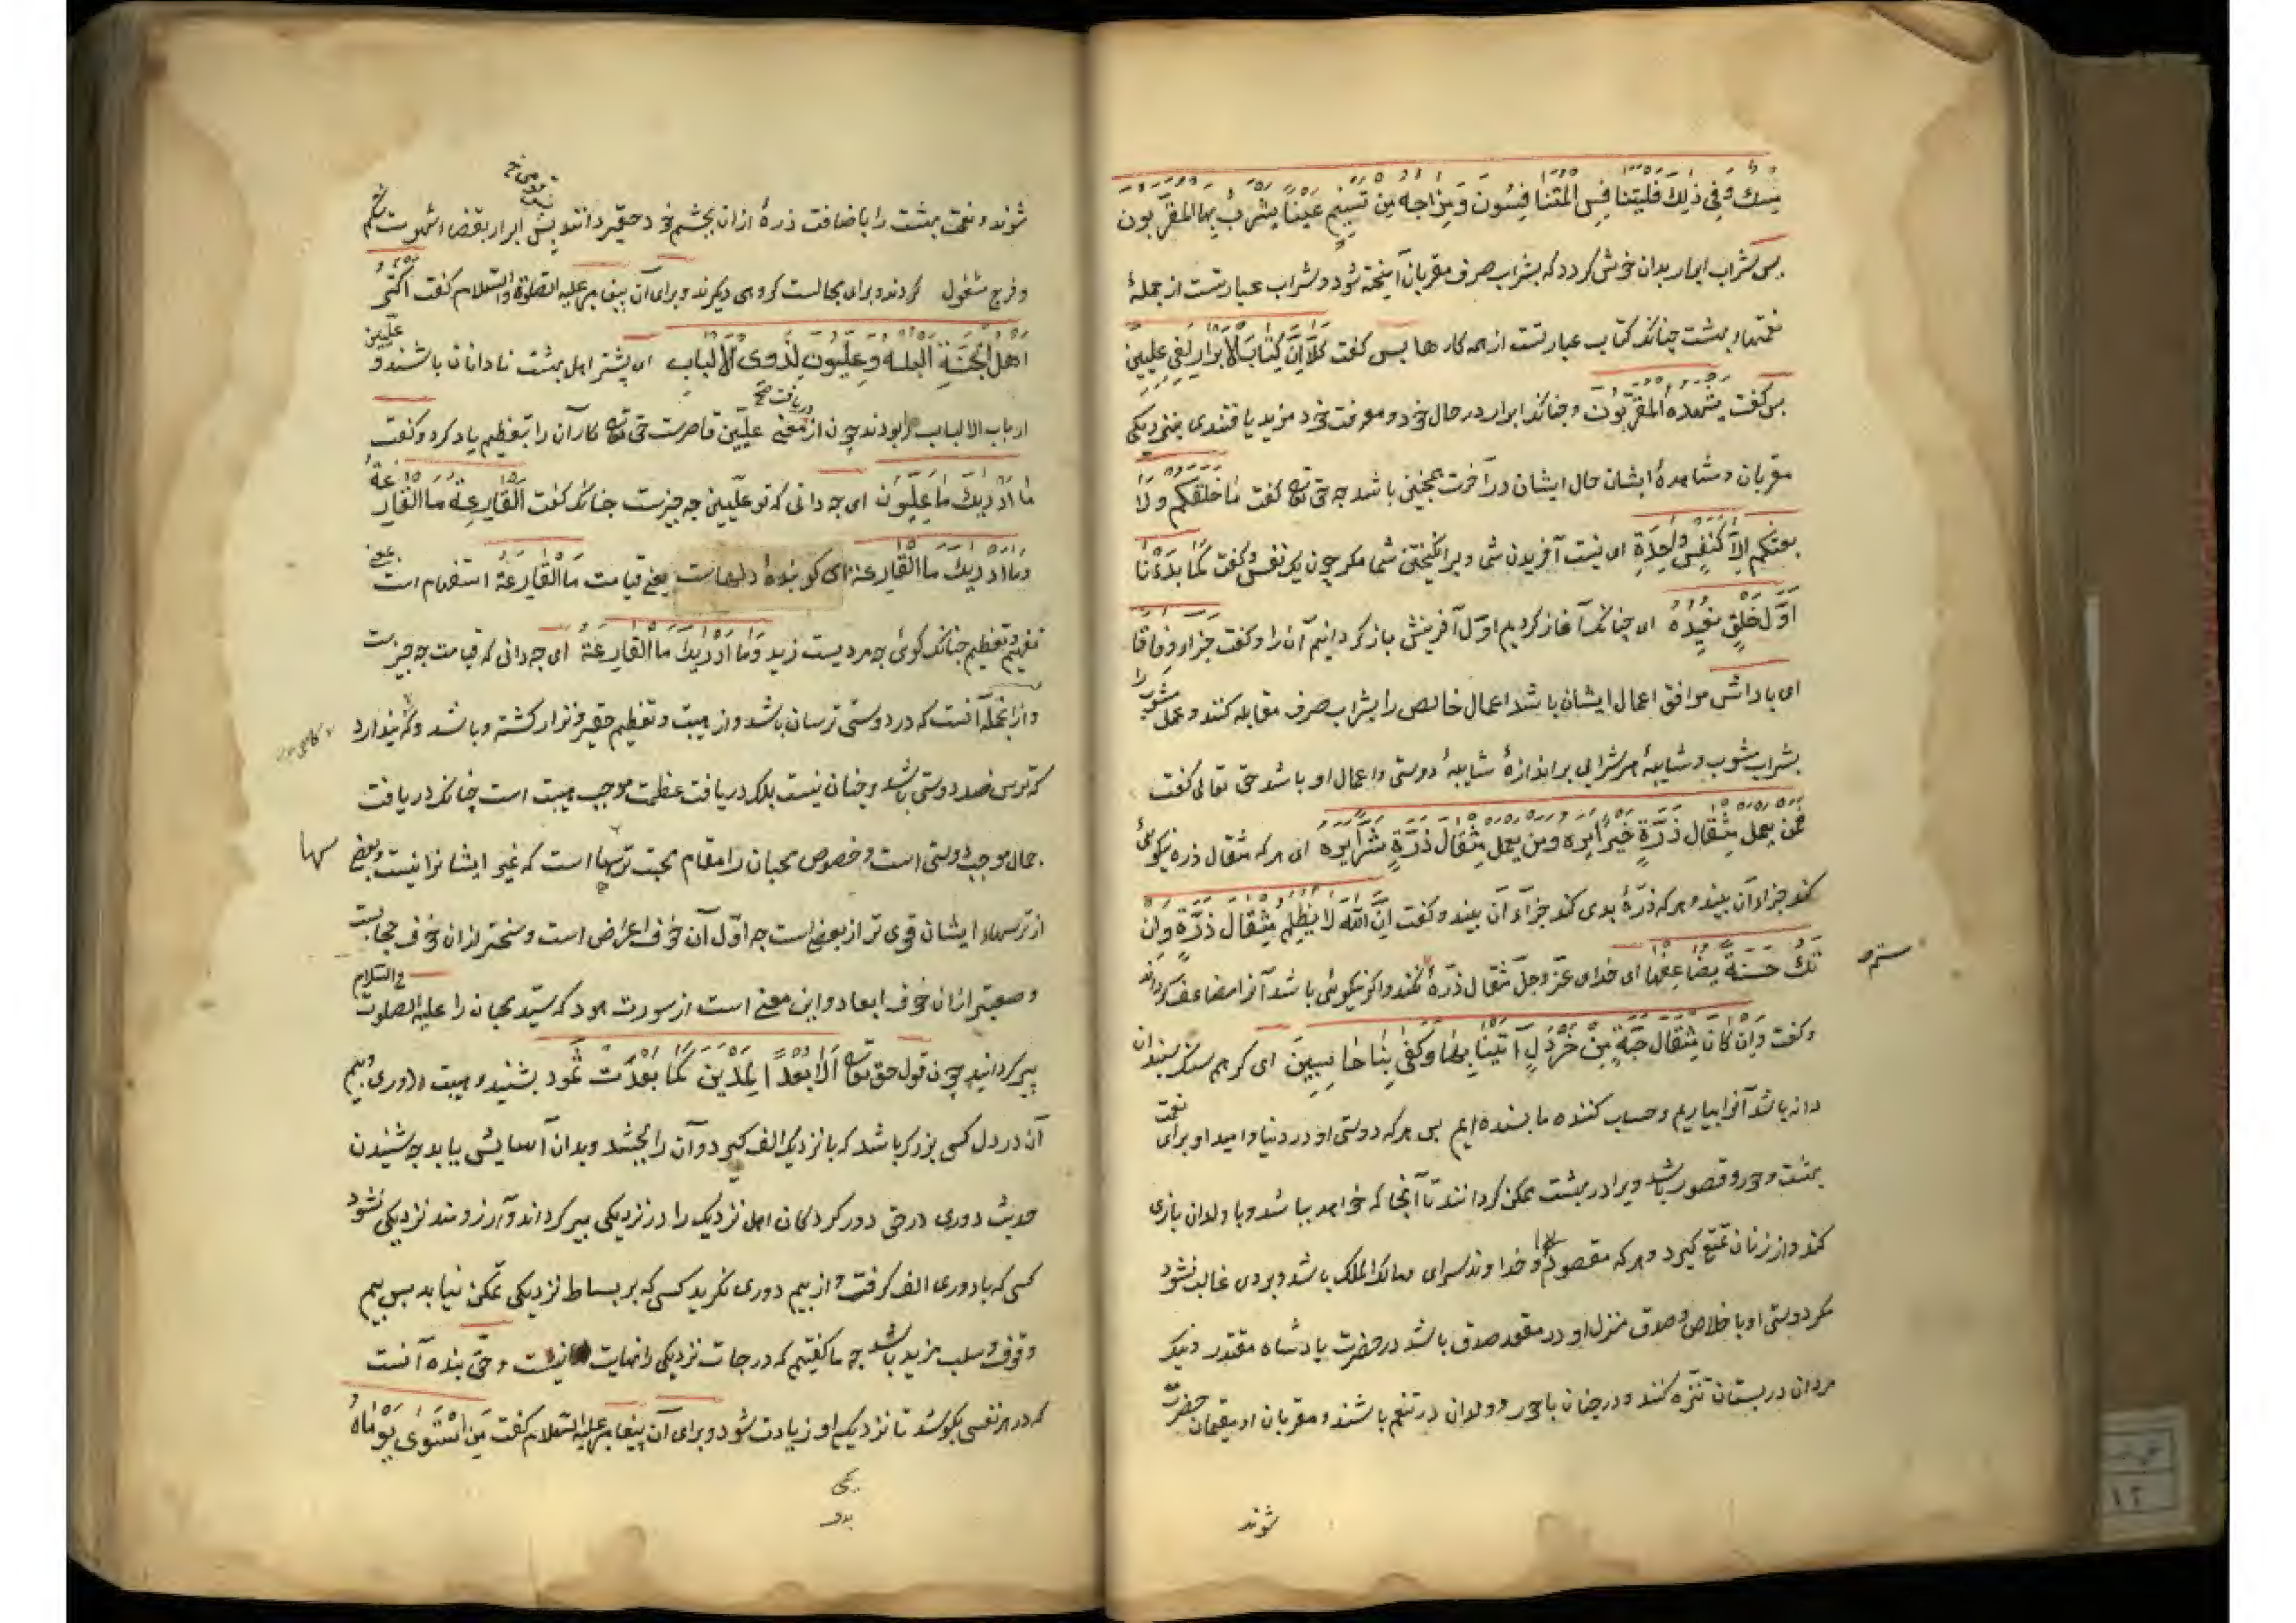 مسك وفى ذلك فليتنافس المتنافسون ومزاجه من تسنيم عينا يشرب بها المقربون
بس شراب ابرار بدان خوش كردد كه بشراب صرف مقربان آميخته شود و شراب عبارتست از جملۀ
نعمتهاء بهشت چنانكه كتاب عبارتست از همه كارها بس كفت كلا ان كتاب الابرار لفى عليين
بس كفت يشهده المقربون وچنانكه ابرار در حال خود و معرفت خود مزيد يافتندى بنزديكى
مقربان ومشاهدۀ ايشان حال ايشان در آخرت همچنين باشد چه حق تعالى كفت ما خلقكم ولا
بعثكم الا كنفس واحدة اى نيست آفريدن شما وبرانكيختن شما مكر چون يك نفس وكفت كما بدءنا
اول خلق نعيده اى چنانكه آغاز كرديم اول آفرينش باز كردانيم آن را وكفت جزاء وفاقا
اى باداش موافق اعمال ايشان باشد اعمال خالص را بشراب صرف مقابله كنند وعمل مشوب را
بشراب مشوب وشايبۀ هر شرابى بر اندازۀ شايبۀ دوستى واعمال او باشد حق تعالى كفت
فمن يعمل مثقال ذرة خيرا يره ومن يعمل مثقال ذرة شرا يره اى هر كه مثقال ذره نيكوئى
كند جزاء آن بيند وهر كه ذرۀ بدى كند جزاء آن بيند وكفت ان الله لا يظلم مثقال ذرة وان
تك حسنة يضاعفها اى خداى عز وجل مثقال ذرۀ نكند واكر نيكوئى باشد آنرا مضاعف كرداند
ستم
وكفت وان كان مثقال حبة من خردل اتينا بها وكفى بنا حاسبين اى كر هم سنك سبندان
دانه باشد آنرا بياريم وحساب كننده ما بسنده ايم بس هر كه دوستى او در دنيا واميد او براى نعمت
بهشت وحور وقصور باشد ويرا در بهشت ممكن كردانند تا آنجا كه خواهد بباشد وبا ولدان بازى
كند واز زنان تمتع كيرد وهر كه مقصود او خداوند سراى ومالك الملك باشد وبر وى غالب نشود
مكر دوستى او باخلاص وصدق منزل او در مقعد صدق باشد در حضرت پادشاه مقتدر ونيك
مردان در بستان تنزه كنند ودر جنان با حور وولدان در تنعم باشند ومقربان او مقيمان حضرت
شوند
شوند ونعمت بهشت را باضافت ذرۀ از ان بچشم خود حقير دانند پس ابرار بقضاء شهوت شكم
وفرج مشغول كردند وبراى مجالست كروهى ديكرند وبراى آن پيغامبر عليه الصلوة والسلام كفت اكثر
اهل الجنة البله وعليون لذوى الالباب اى بيشتر اهل بهشت نادانان باشند وعليين
ارباب الالباب را بود وچون از دريافت معنى عليين قاصرست حق تعالى كار آن را بتعظيم ياد كرد وكفت
ما ادريك ما عليون اى چه دانى كه تو عليين چه چيزست چنانكه كفت القارعة ما القارعة
وما ادريك ما القارعة اى كوبندۀ دلهاست يعنى قيامت ما القارعة استفهام است
تفخيم وتعظيم چنانكه كوئى چه مرديست زيد وما ادريك ما القارعة اى چه دانى كه قيامت چه چيزست
وازانجمله آنست كه در دوستى ترسان باشد واز هيبت وتعظيم حقير ونزار كشته وباشد وكه پندارد
كه ترس ضد دوستى باشد وچنان نيست بلكه دريافت عظمت موجب هيبت است چنانكه دريافت
جمال موجب دوستى است وخصوص محبان را مقام محبت ترسها است كه غير ايشانرا نيست وبعضى
سها
از ترسهاء ايشان قوى تر از بعض است چه اول آن خوف اعراض است وسختر از ان خوف حجابست
وصعبتر از ان خوف ابعاد واين معنى است از سورت هود كه سيد محبان را عليه الصلوة والسلام
پير كردانيد چون قول حق تعالى الا بعدا لمدين كما بعدت ثمود بشنيد وهيبت دورى وبيم
آن در دل كسى بزرك باشد كه با نزديك الف كيرد وآن را بچشد وبدان آسايش يابد چه شنيدن
حديث دورى در حق دور كردكان اهل نزديك را در نزديكى پير كرداند وآرزومند نزديكى نشود
كسى كه با دورى الف كرفت واز بيم دورى نكريد كسى كه بر بساط نزديكى تمكن نيابد بس بيم
وقوف وسلب مزيد باشد چه ما كفتيم كه درجات نزديكى را نهايت نيست وحق بنده آنست
كه در هر نفسى بكوشد تا نزديكى او زيادت شود وبراى آن پيغامبر عليه السلام كفت من استوى يوماه